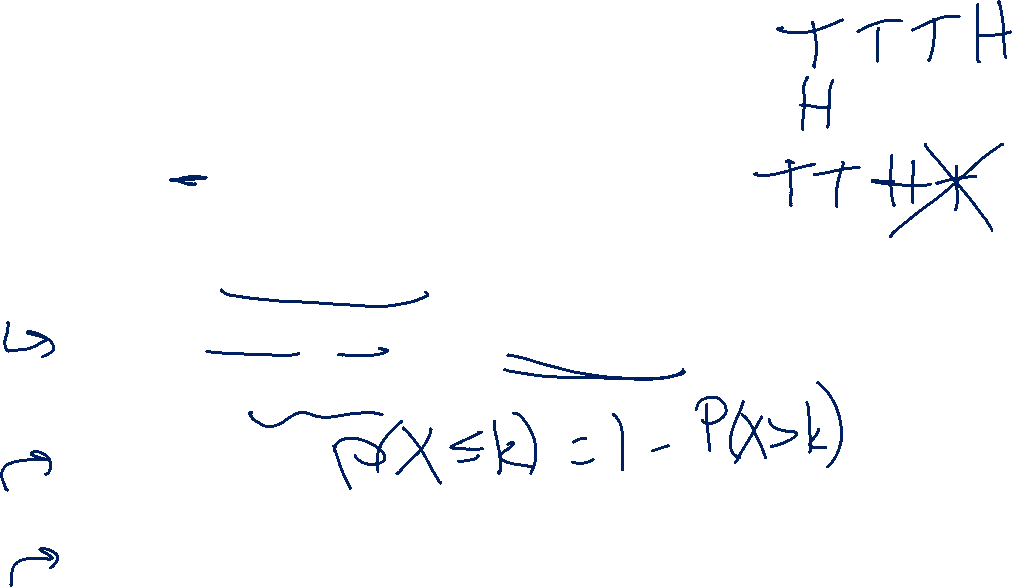 T T T H
H
T T H
P(X ≤ k) = 1 - P(X > k)